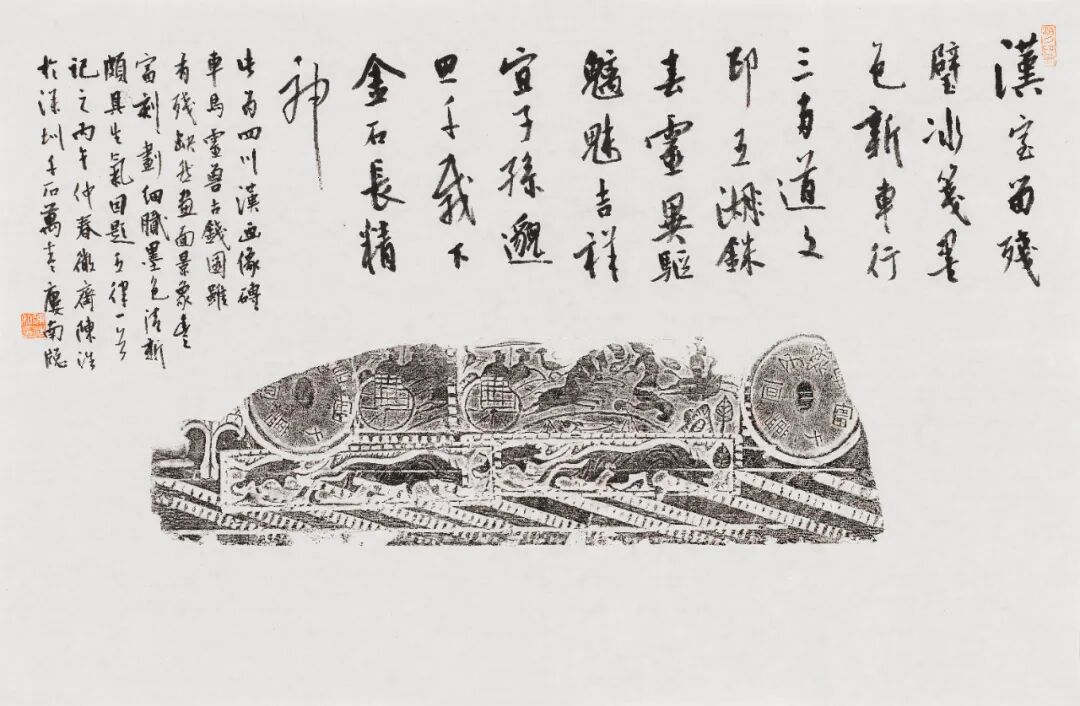 漢室留殘
甓冰箋墨
色新車行
三市道文
印五湖銖
春靈異驅
魑魅吉祥
宜子孫邈
思千載下
金石長精
神
此為四川漢画像磚
車馬靈獸古錢圖雖
有殘缺然畫面景象豐
富刻劃細膩墨色清新
頗具生氣因題五律一首
記之丙午仲春微齋陳浩
於深圳千石萬壺廔南牕